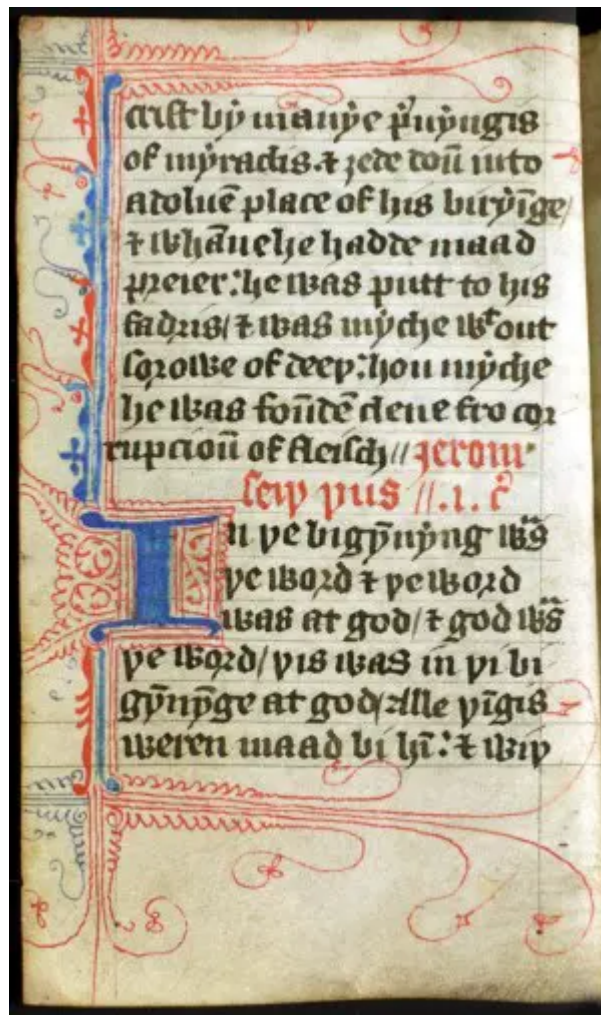 crist bẏ manẏe p͛uẏngis
of mẏraclis .⁊ ȝede doū into
a doluē place of his birẏīge/
⁊ whāne he hadde maad
preier: he was putt to his
fadris/ ⁊ was mẏche wᵗout
sorowe of deeþ: hou mẏche
he was foūdē clene fro cor
rupcioū of fleisch // Jerom
seiþ þus //.i. c͛
In þe bigẏn̄ẏng wᵃs
þe word ⁊ þe word
was at god/ ⁊ god wᵃs
þe word/ þis was in þi bi
gẏn̄ẏnge at god/ Alle þīgis
weren maad bi hī: ⁊ wiþ